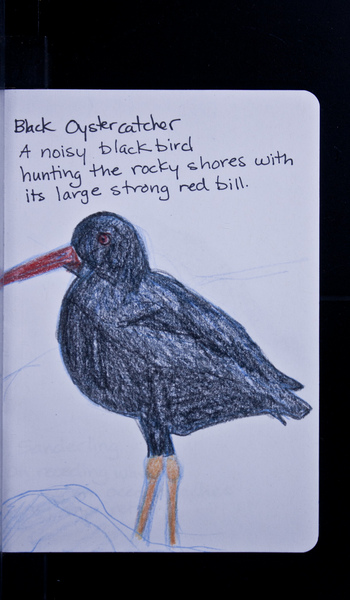 Black Oystercatcher
A noisy black bird
hunting the rocky shores with
its large strong red bill.